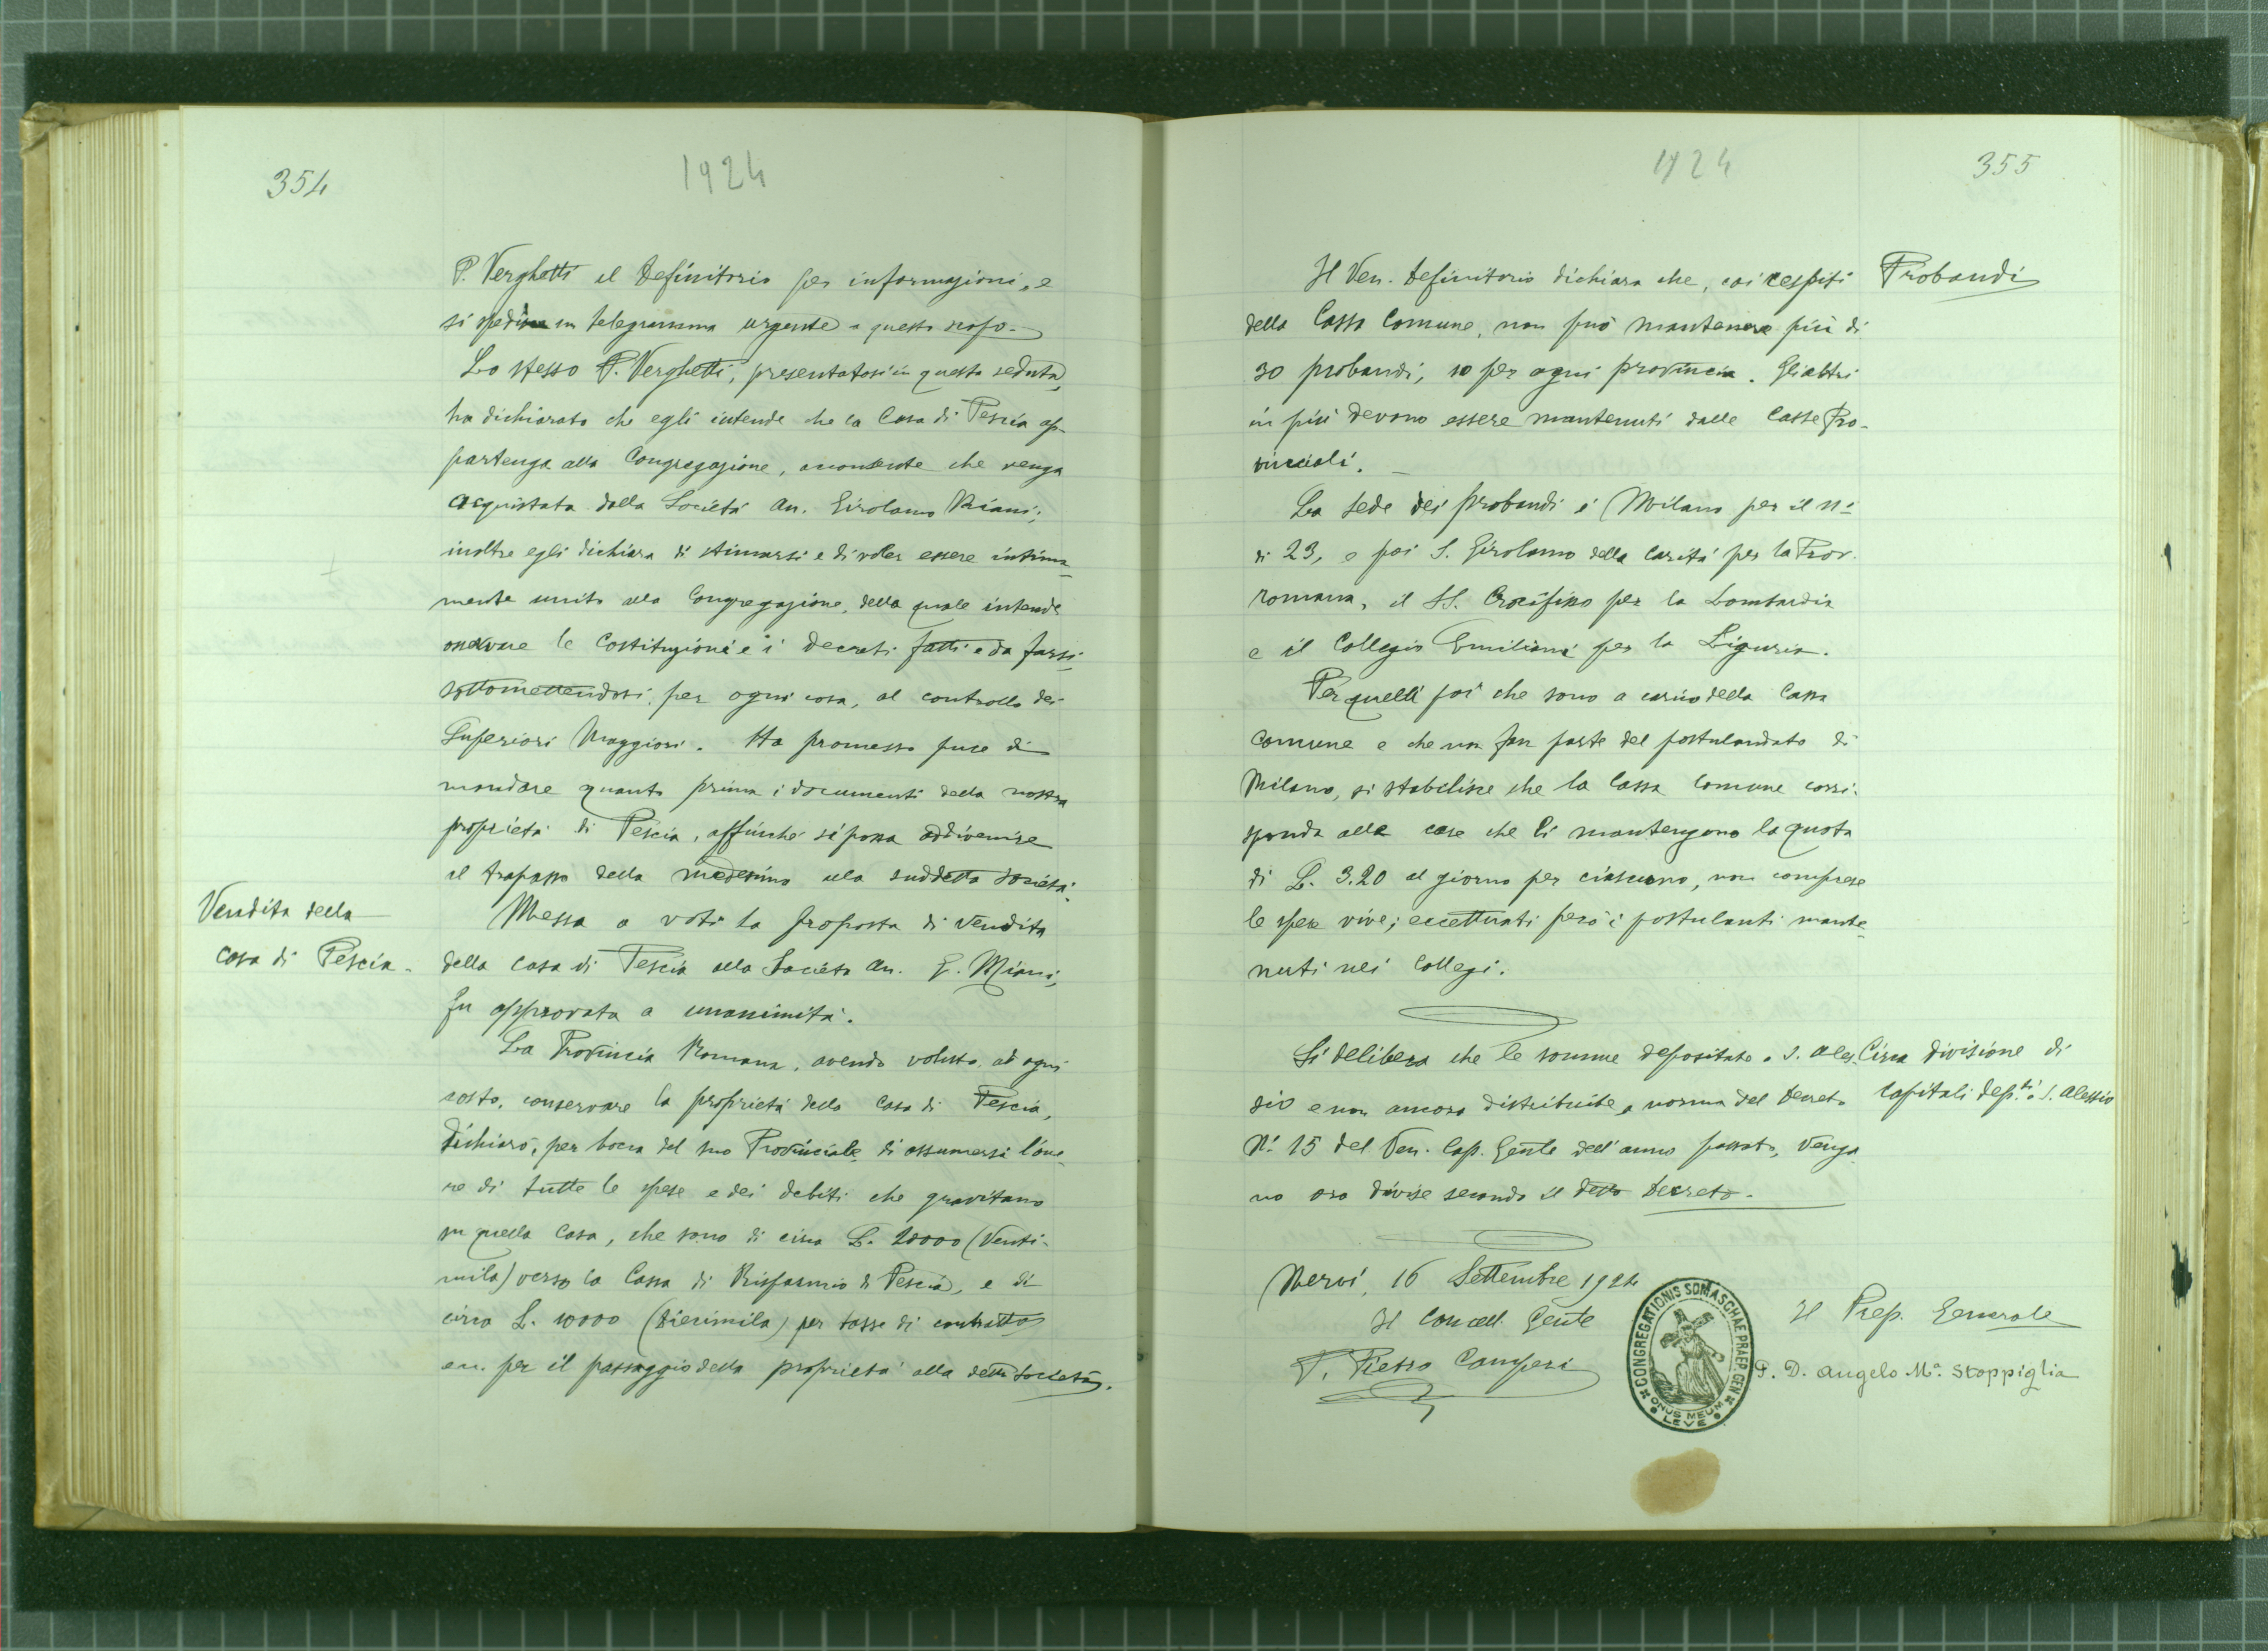 354
1924
P. Verghetti il Definitorio per informazioni, e
si spedisce un telegramma urgente a questo scopo.
Lo stesso P. Verghetti, presentatosi in questa seduta,
ha dichiarato che egli intende che la Casa di Pescia ap-
partenga alla Congregazione, acconsente che venga
acquistata dalla Società An. Girolamo Miani;
inoltre egli dichiara di stimarsi e di voler essere intima-
mente unito alla Congregazione, della quale intende
osservare le Costituzioni e i decreti fatti e da farsi
sottomettendosi, per ogni cosa, al controllo dei
Superiori Maggiori. Ha promesso pure di
mandare quanto prima i documenti della nostra
proprietà di Pescia, affinché si possa addivenire
al trapasso della medesima alla suddetta società.
Vendita della
casa di Pescia.
Messa a voti la proposta di vendita
della casa di Pescia alla Società An. G. Miani,
fu approvata a unanimità.
La Provincia Romana, avendo voluto, ad ogni
costo, conservare la proprietà della casa di Pescia,
dichiarò, per bocca del suo Provinciale, di assumersi l'one-
re di tutte le spese e dei debiti che gravitano
su quella Casa, che sono di circa L. 20000 (Venti-
mila) verso la Cassa di Risparmio di Pescia, e di
circa L. 10000 (diecimila) per tasse di contratto
ecc. per il passaggio della proprietà alla detta Società.
1924
355
Il Ven. Definitorio dichiara che, coi cespiti
della Cassa Comune, non può mantenere più di
30 probandi, 10 per ogni provincia. Gli altri
in più devono essere mantenuti dalle Casse Pro-
vinciali.
Probandi
La sede dei probandi è Milano per il n.
di 23, e poi S. Girolamo della Carità per la Prov.
romana, il SS. Crocifisso per la Lombardia
e il Collegio Emiliani per la Liguria.
Per quelli poi che sono a carico della Cassa
comune e che non fan parte del postulandato di
Milano, si stabilisce che la Cassa Comune corri-
sponda alle case che li mantengono la quota
di L. 3.20 al giorno per ciascuno, non comprese
le spese vive; eccettuati però i postulanti mante-
nuti nei Collegi.
Si delibera che le somme depositate a S. Ales-
sio e non ancora distribuite, a norma del Decreto
N. 15 del Ven. Cap. Gen.le dell'anno passato, venga-
no ora divise secondo il detto Decreto.
Circa divisione di
capitali dep.ti a S. Alessio
Nervi, 16 Settembre 1924
Il Cancell. Gen.le
P. Pietro Camperi
CONGREGATIONIS SOMASCHAE PRAEP. GEN.
ONUS MEUM
LEVE
Il Prep. Generale
P. D. Angelo M.a Stoppiglia